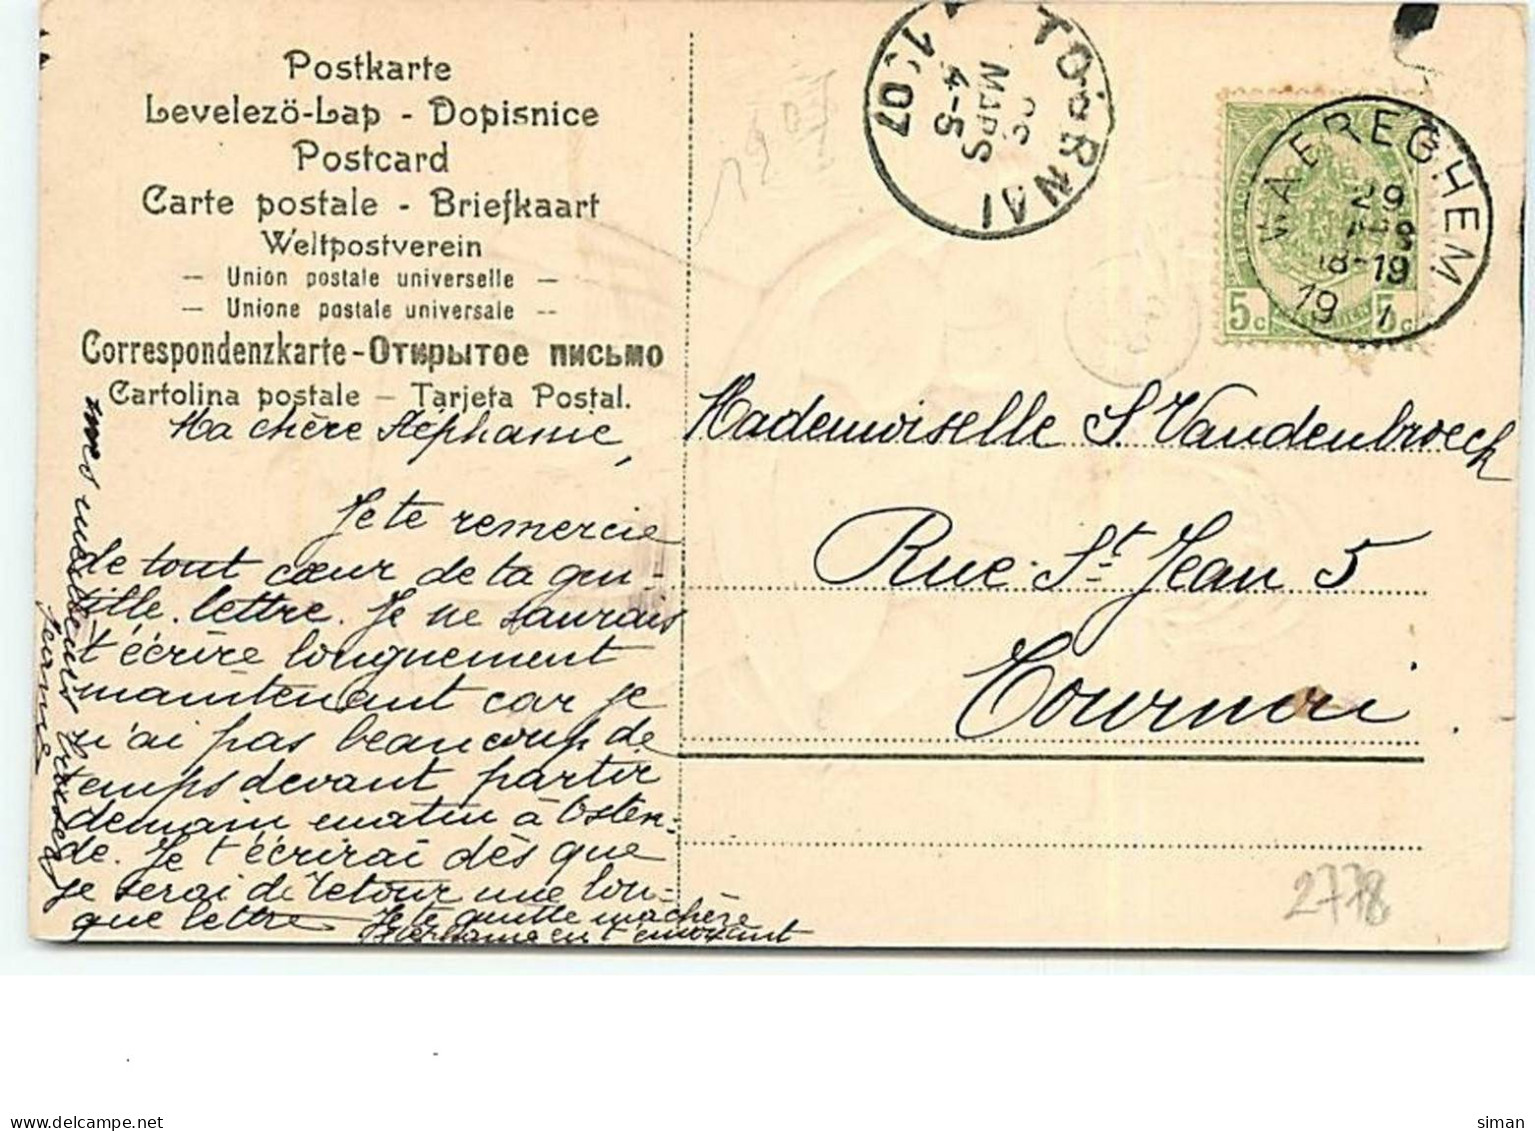 Postkarte
Levelezö-Lap - Dopisnice
Postcard
Carte postale - Briefkaart
Weltpostverein
— Union postale universelle —
— Unione postale universale --
Correspondenzkarte - Открытое письмо
Cartolina postale — Tarjeta Postal.
Ma chère Stéphanie,
Je te remercie
de tout cœur de ta gen-
tille lettre. Je ne saurais
t'écrire longuement
maintenant car je
n'ai pas beaucoup de
temps devant partir
demain matin à Osten-
de. Je t'écrirai dès que
je serai de retour une lon-
gue lettre Je te quitte ma chère
Stéphanie en t'envoyant
mes meilleurs baisers
Jeanne
1907
TOURNAI
MARS
4-5
1907
WAEREGHEM
29
18-19
19 7
5c 5c
Mademoiselle S. Vandenbroeck
Rue St Jean 5
Tournai
2778
delcampe.net
siman